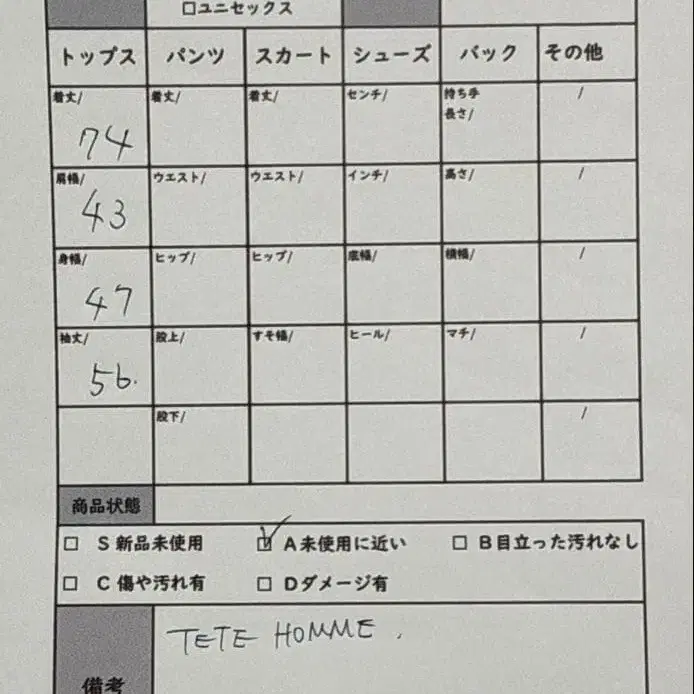 □ユニセックス
トップス パンツ スカート シューズ バック その他
着丈/ 着丈/ 着丈/ センチ/ 持ち手 /
長さ/
74
肩幅/ ウエスト/ ウエスト/ インチ/ 高さ/ /
43
身幅/ ヒップ/ ヒップ/ 底幅/ 横幅/ /
47
袖丈/ 股上/ すそ幅/ ヒール/ マチ/ /
56.
股下/ /
商品状態
□ S 新品未使用 ☑ A未使用に近い □ B目立った汚れなし
□ C 傷や汚れ有 □ Dダメージ有
TETE HOMME .
備考